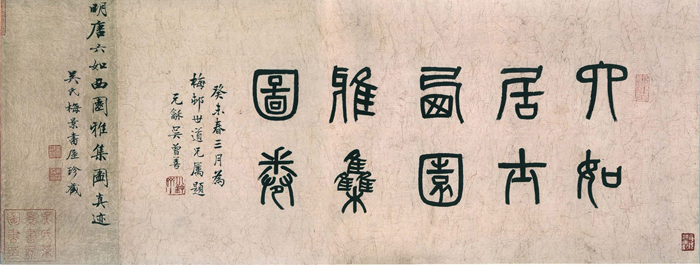 六如
居士
西園
雅集
圖卷
癸未春三月為
梅邨世道兄屬題
元龢吳曾善
明唐六如西園雅集圖真迹
吳氏梅景書屋珍藏